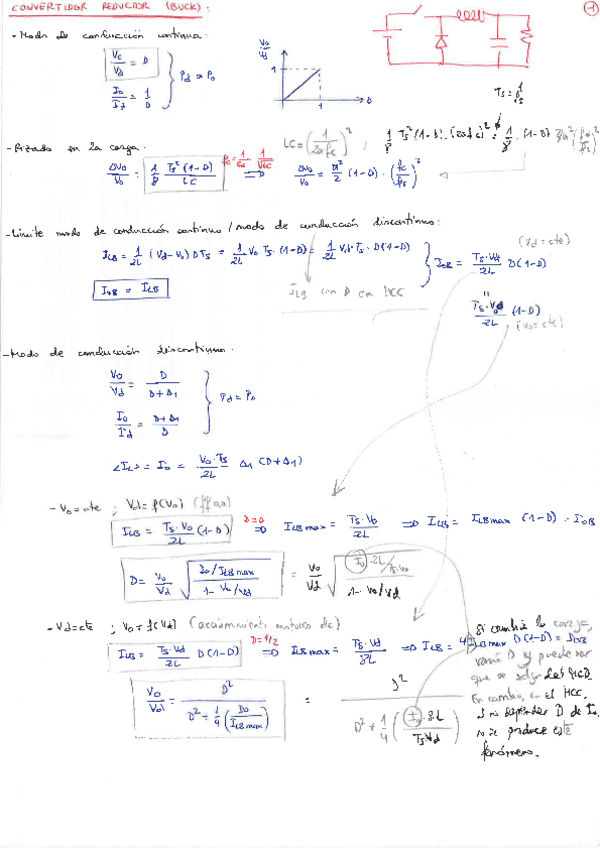 CONVERTIDOR REDUCTOR (BUCK):
-1
- Modo de conducción continua:
Vc/Vd = D
Io/Id = 1/D
Pd = Po
Vo/Vd
1
1
D
Ts = 1/fs
- Rizado en la carga.
ΔVo/Vo = 1/8 Ts²(1-D)/LC
=> ΔVo/Vo = π²/2 (1-D) · (fc/fs)²
- Límite modo de conducción continuo / modo de conducción discontinuo:
ILB = 1/2L (Vd-Vo) DTs = 1/2L Vo Ts · (1-D) = 1/2L Vd · Ts · D(1-D)
IoB = Ts·Vd/2L D(1-D)
(Vd = cte)
IoB = ILB
ILB con D en MCC
Ts·Vo/2L (1-D)
(Vo = cte)
- Modo de conducción discontinuo.
Vo/Vd = D/D+Δ1
Io/Id = D+Δ1/D
Pd = Po
<IL> = Io = Vo·Ts/2L Δ1 (D+Δ1)
- Vo = cte ; Vd = f(Vo)
ILB = Ts·Vo/2L (1-D)
D=0 => ILBmax = Ts·Vo/2L => ILB = ILBmax (1-D) = IoB
D = Vo/Vd √(Io/ILBmax / 1-Vo/Vd) = Vo/Vd √(Io · 2L/Ts·Vo / 1-Vo/Vd)
- Vd = cte ; Vo = f(Vd) (accionamiento motores dc)
ILB = Ts·Vd/2L D(1-D)
D=1/2 => ILBmax = Ts·Vd/8L => ILB = 4 ILBmax D(1-D) = IoB
Vo/Vd = D²/D²+1/4 (Io/ILBmax) = D²/D²+1/4 (Io·8L/Ts·Vd)
Si cambia la carga,
varía D y puede ser
que se salga del MCD
En cambio, en el MCC,
al no depender D de Io,
no se produce este
fenómeno.